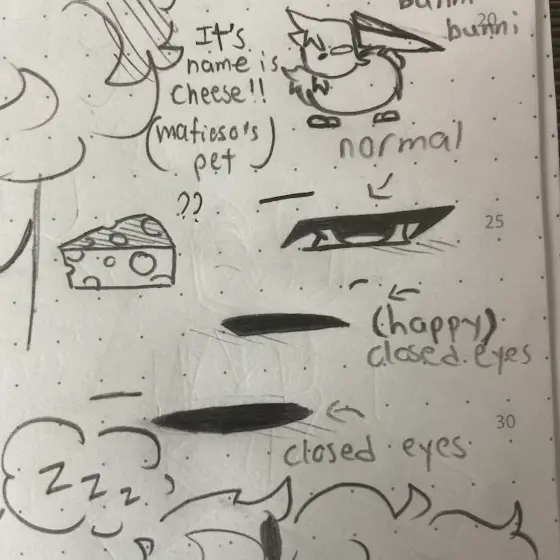 20
bunni
It's
name is
cheese!!
(mafioso's
pet)
normal
??
25
(happy)
closed eyes
30
closed eyes
z z z